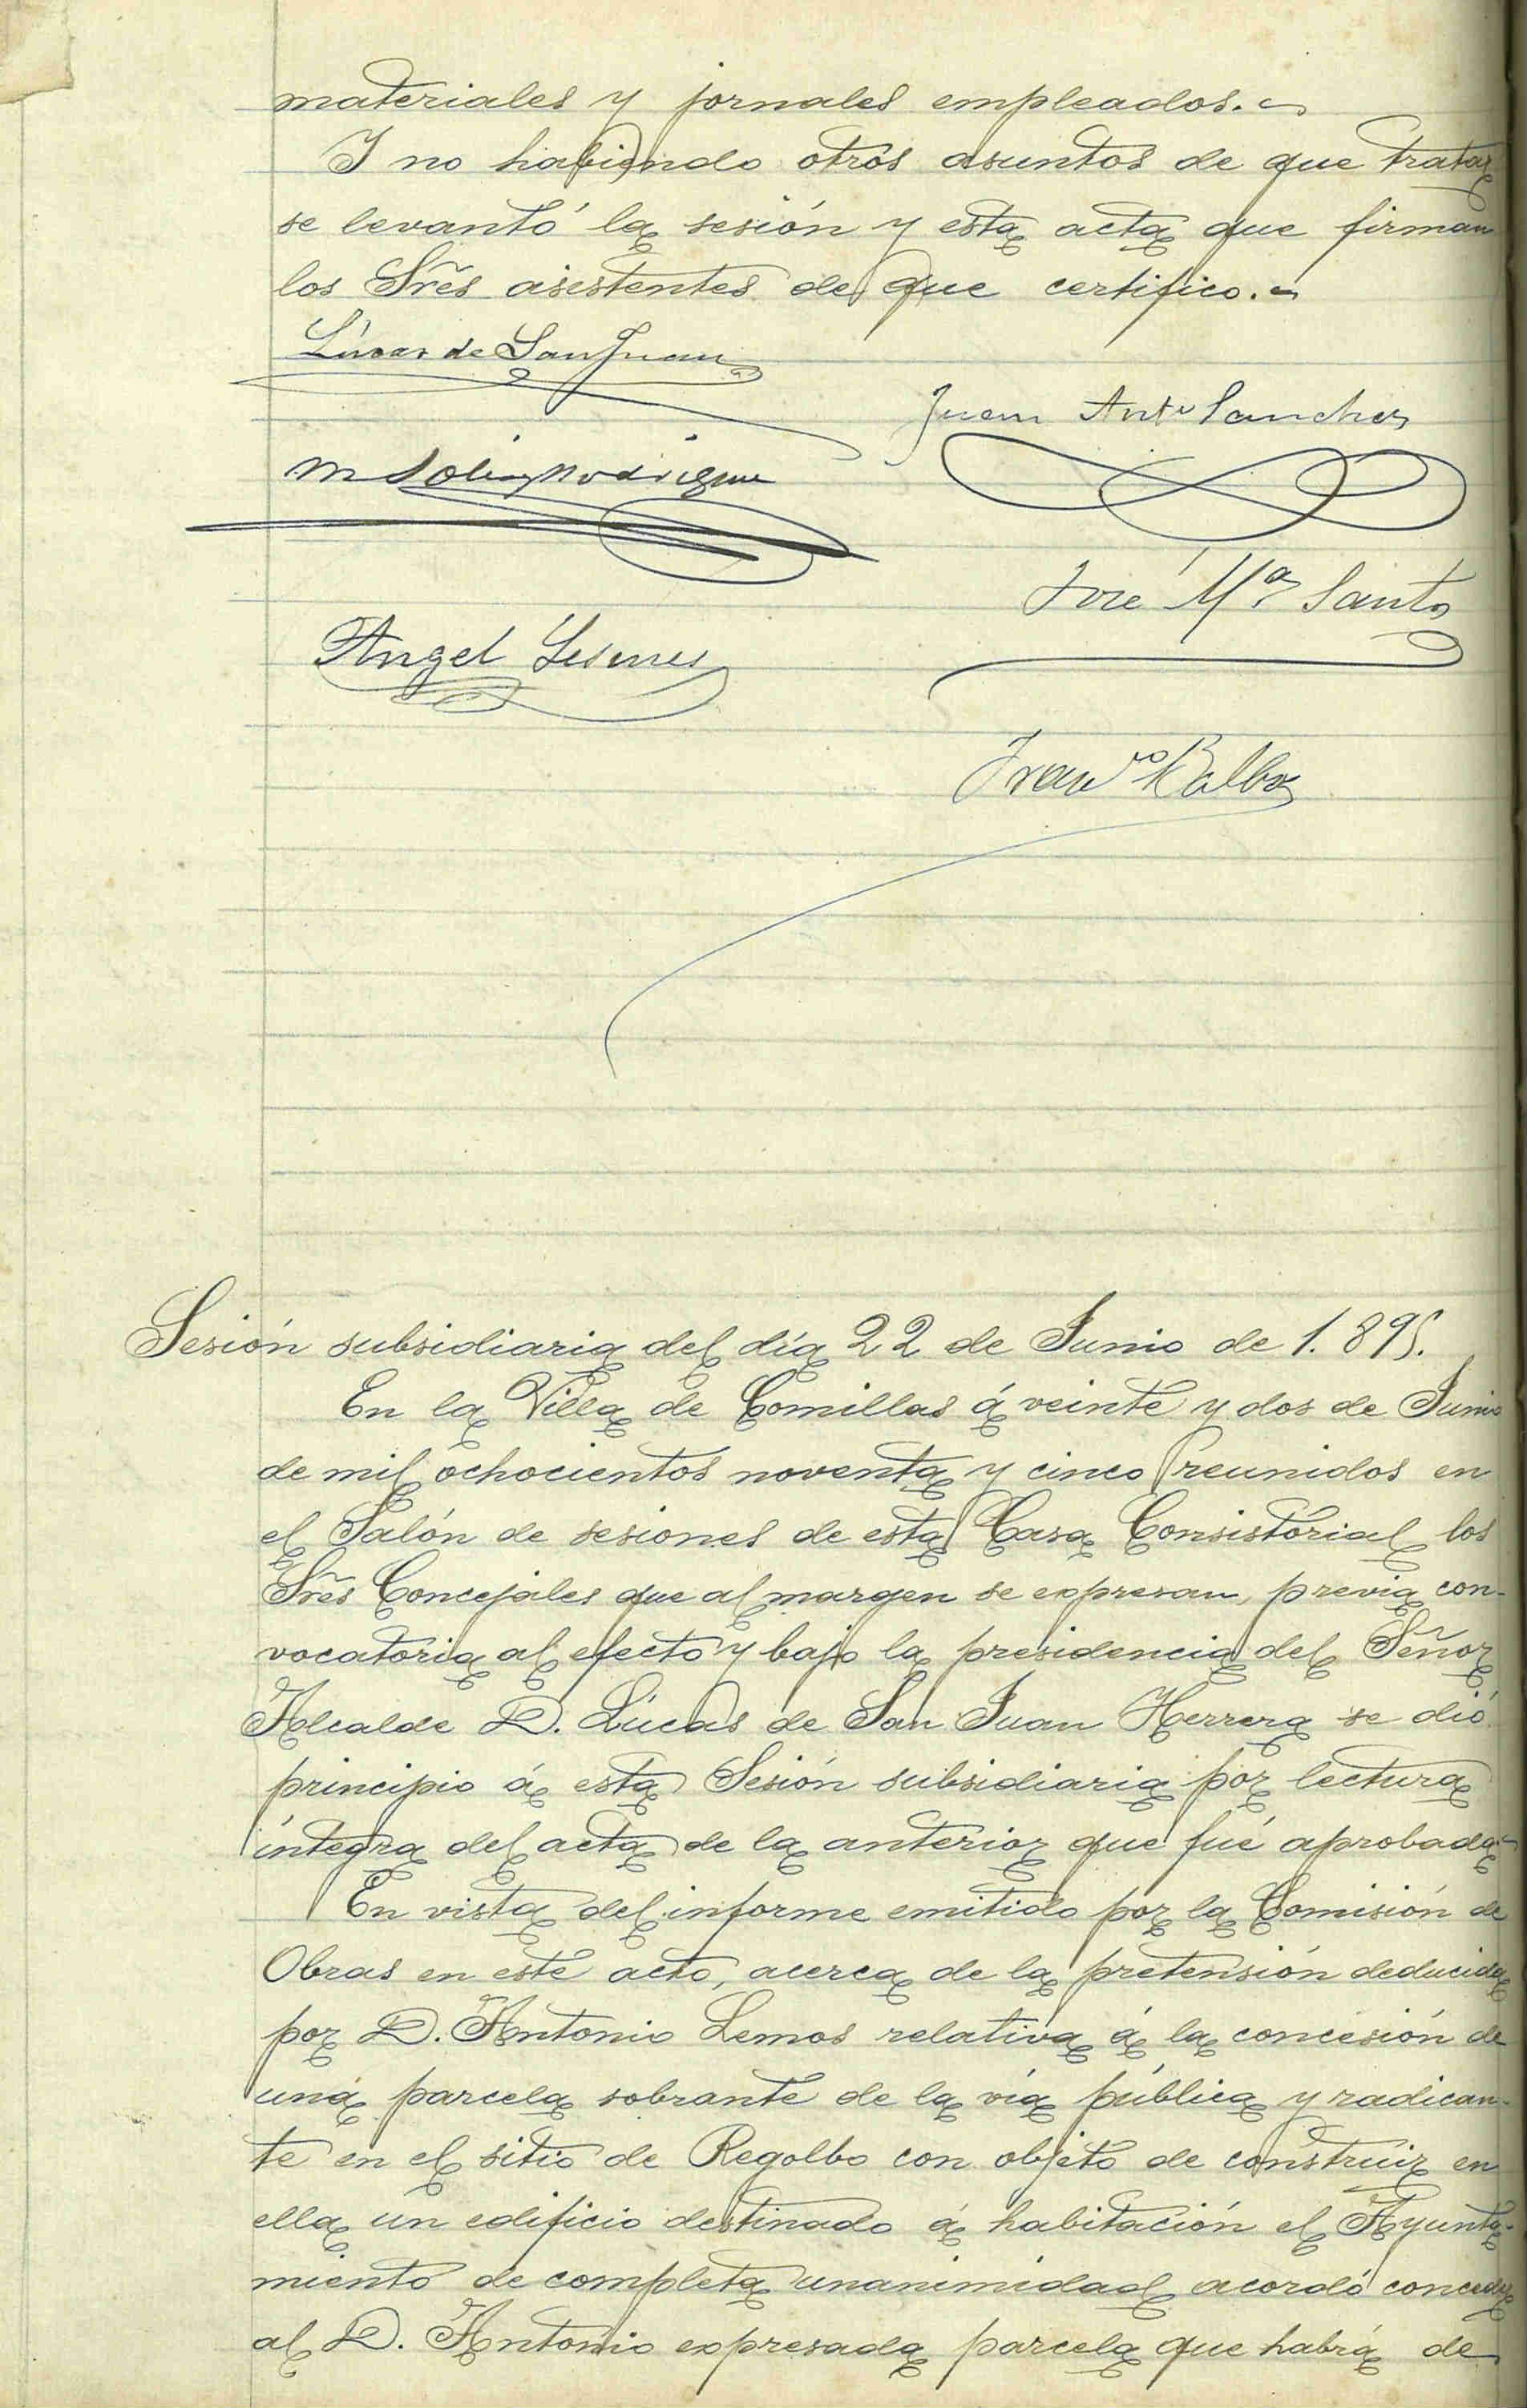 materiales y jornales empleados.
Y no habiendo otros asuntos de que tratar
se levantó la sesión y esta acta que firman
los Sres asistentes de que certifico.
Lúcas de San Juan
Juan Anto Sanchez
M Rodriguez
José Ma Santos
Angel Lesmes
Franco Balbo
Sesión subsidiaria del día 22 de Junio de 1.895.
En la Villa de Comillas á veinte y dos de Junio
de mil ochocientos noventa y cinco reunidos en
el Salón de sesiones de esta Casa Consistórial los
Sres Concejales que al margen se expresan, previa con-
vocatoria al efecto y bajo la presidencia del Señor
Alcalde D. Lúcas de San Juan Herrera se dió
principio á esta Sesión subsidiaria por lectura
íntegra del acta de la anterior que fué aprobada.
En vista del informe emitido por la Comisión de
Obras en este acto, acerca de la pretensión deducida
por D. Antonio Lemos relativa á la concesión de
una parcela sobrante de la vía pública y radican-
te en el sitio de Regolbo con objeto de construir en
ella un edificio destinado á habitación el Ayunta-
miento de completa unanimidad acordó conceder
al D. Antonio expresada parcela que habrá de